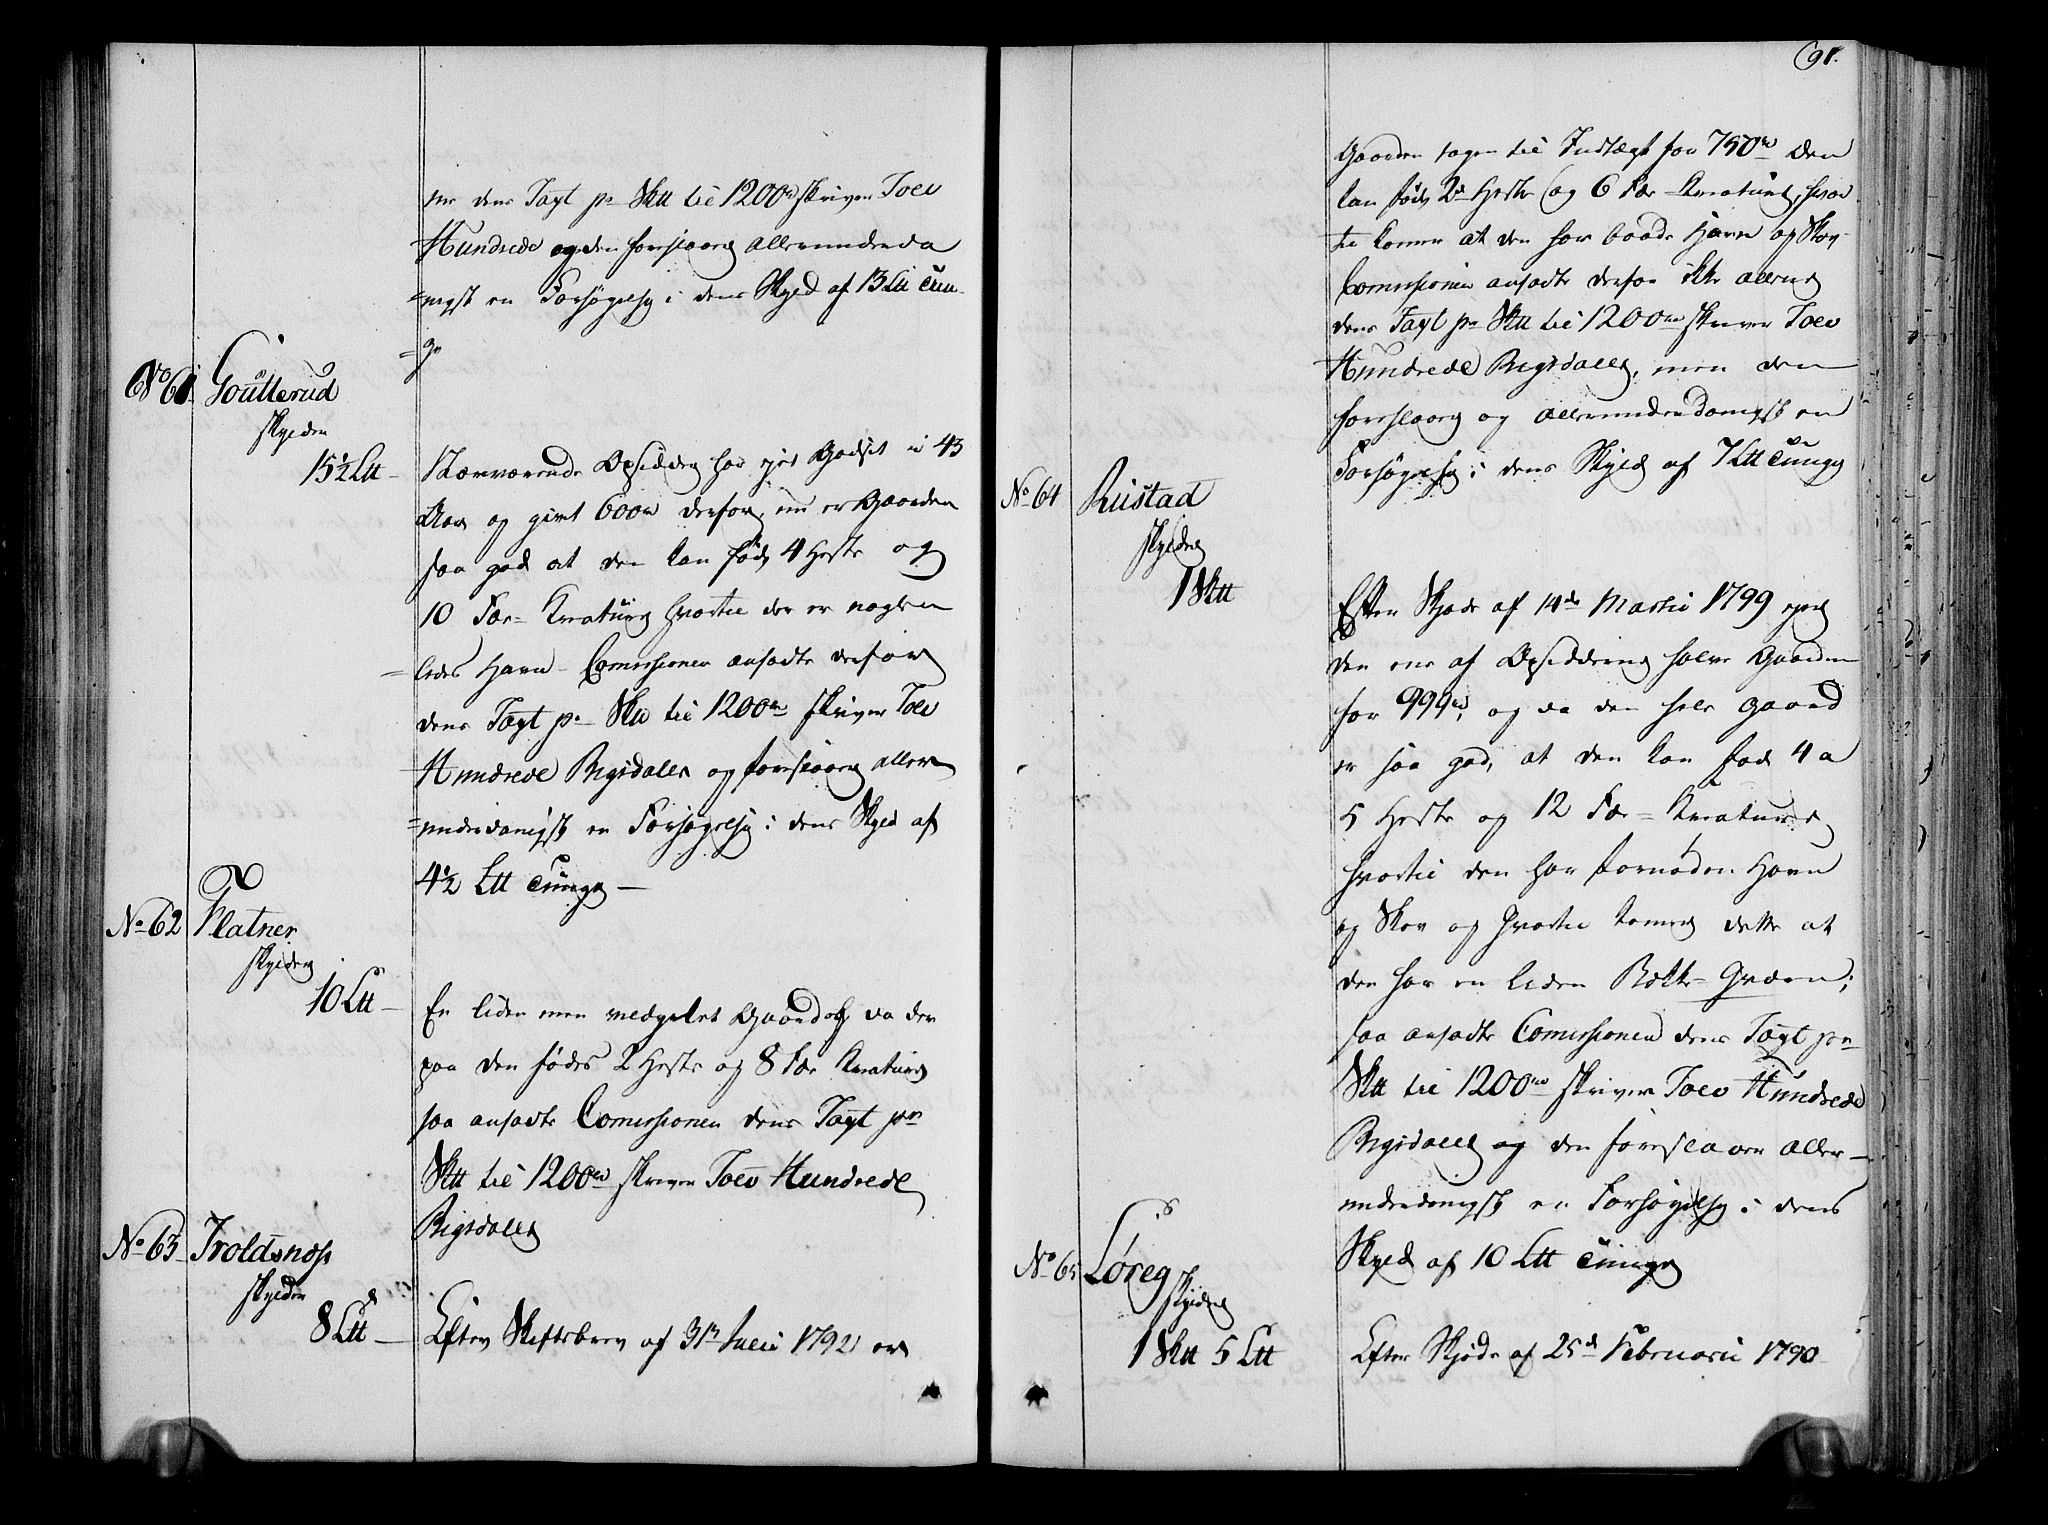 ne dens Taxt pr Skll til 1200 rd skriver Tolv
Hundrede og den foreslaaes allerundreda
=nigst en Forhøgelse i dens Skyld af 13 Ltt Tun-
=ge
No 61 Goulterud
skylden
15½ Ltt
Nærværende Opsidder har ejet Godset i 43
Aar og givet 600 rd derfor, nu er Gaarden
saa god at den kan føde 4 Heste og
10 Fæ- Kreature hvortil der er nogleen
=ledes Havn - Comissionen ansadte derfor
dens Taxt pr Skll til 1200 rd skriver Tolv
Hundrede Rigsdaler og foreslaaes aller
=underdanigst en Forhøgelse i dens Skyld af
4½ Ltt Tunge
No 62 Flatner
skylden
10 Ltt
En liden men velgelet Gaard og da der
paa den fødes 2 Heste og 8 Fæ Kreature
saa ansadte Comissionen dens Taxt pr
Skll til 1200 rd skriver Tolv Hundrede
Rigsdaler
No 63 Troldsnæs
skylden
8 Ltt
Efter Skiftebrev af 31te Julii 1792 er
91.
Gaarden tagen til Indtægt for 750 rd Den
kan føde 2 Heste og 6 Fæ- Kreature, hvor
til kommer at den har baade Havn og Skov
Comissionen ansadte derfor ikke allene
dens Taxt pr Skll til 1200 rd skriver Tolv
Hundrede Rigsdaler, men den
foreslaaes og allerunderdanigst en
Forhøgelse i dens Skyld af 7 Ltt Tunge
No 64 Rustad
skylden
1 Skll
Efter Skjøde af 14de Martii 1799 ejer
den ene af Opsidderne halve Gaarden
for 999 rd, og da den hele Gaard
er saa god, at den kan føde 4 a
5 Heste og 12 Fæ- Kreature
hvortil den har fornøden Havn
og Skov og hvortil kommer dette at
den har en liden Bække-Qværn;
saa ansadte Comissionen dens Taxt pr
Skll til 1200 rd skriver Tolv Hundrede
Rigsdaler og den foreslaaes aller-
underdanigst en Forhøyelse i dens
Skyld af 10 Ltt Tunge
No 65 Løreg
skylden
1 Skll 5 Ltt
Efter Skjøde af 25de Februarii 1790